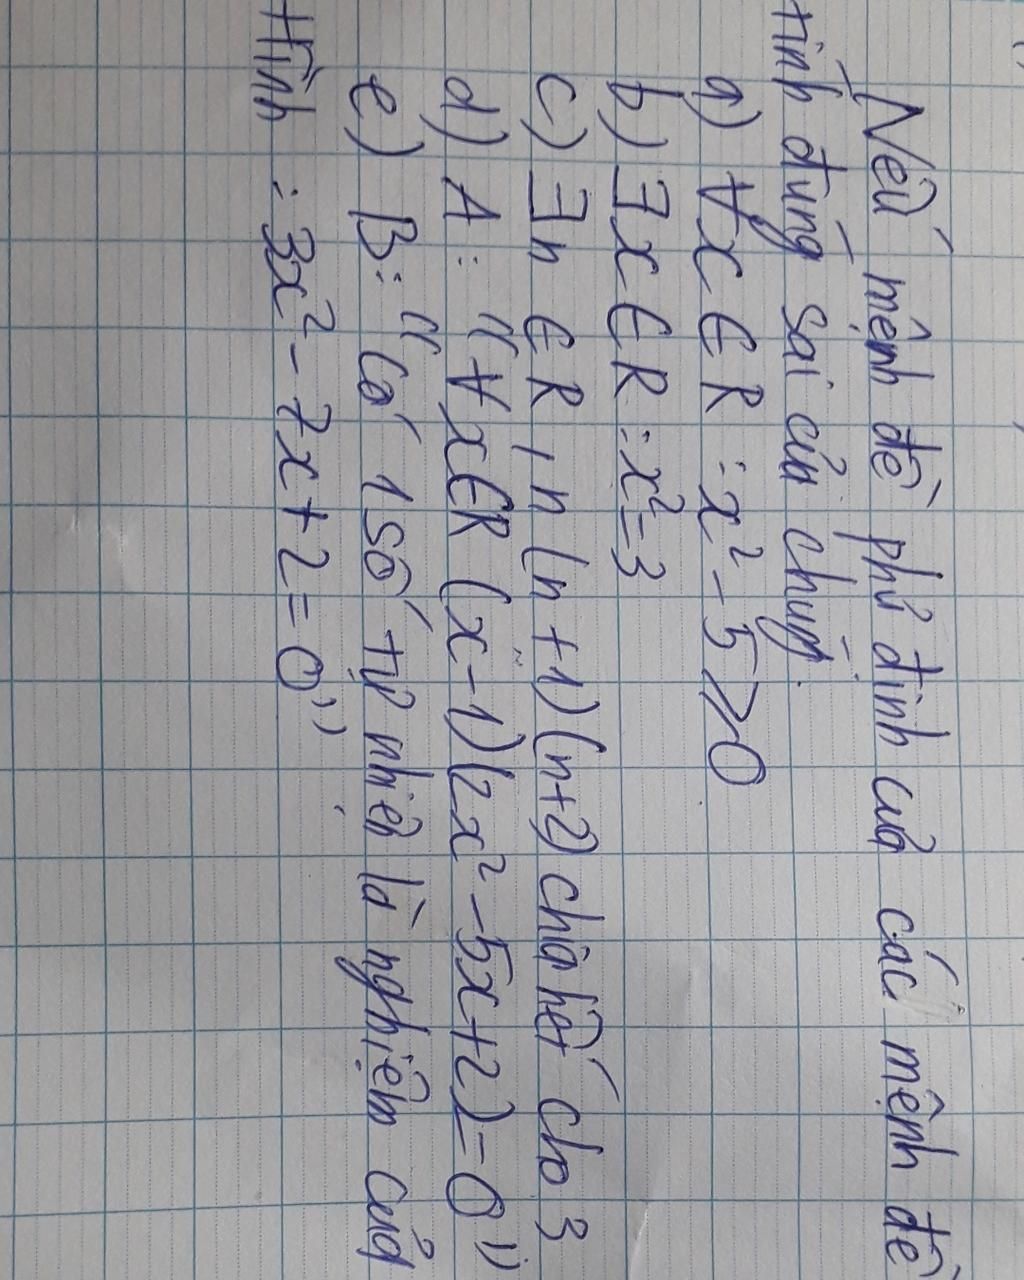 Nêu mệnh đề phủ định của các mệnh đề
tính đúng sai của chúng.
a) ∀x ∈ R : x² - 5 ⩾ 0
b) ∃x ∈ R : x² = 3
c) ∃n ∈ R, n(n+1)(n+2) chia hết cho 3
d) A : "∀x∈R (x-1)(2x² - 5x+2) = 0"
e) B: "Có 1 số tự nhiên là nghiệm của
trình : 3x² - 7x + 2 = 0"